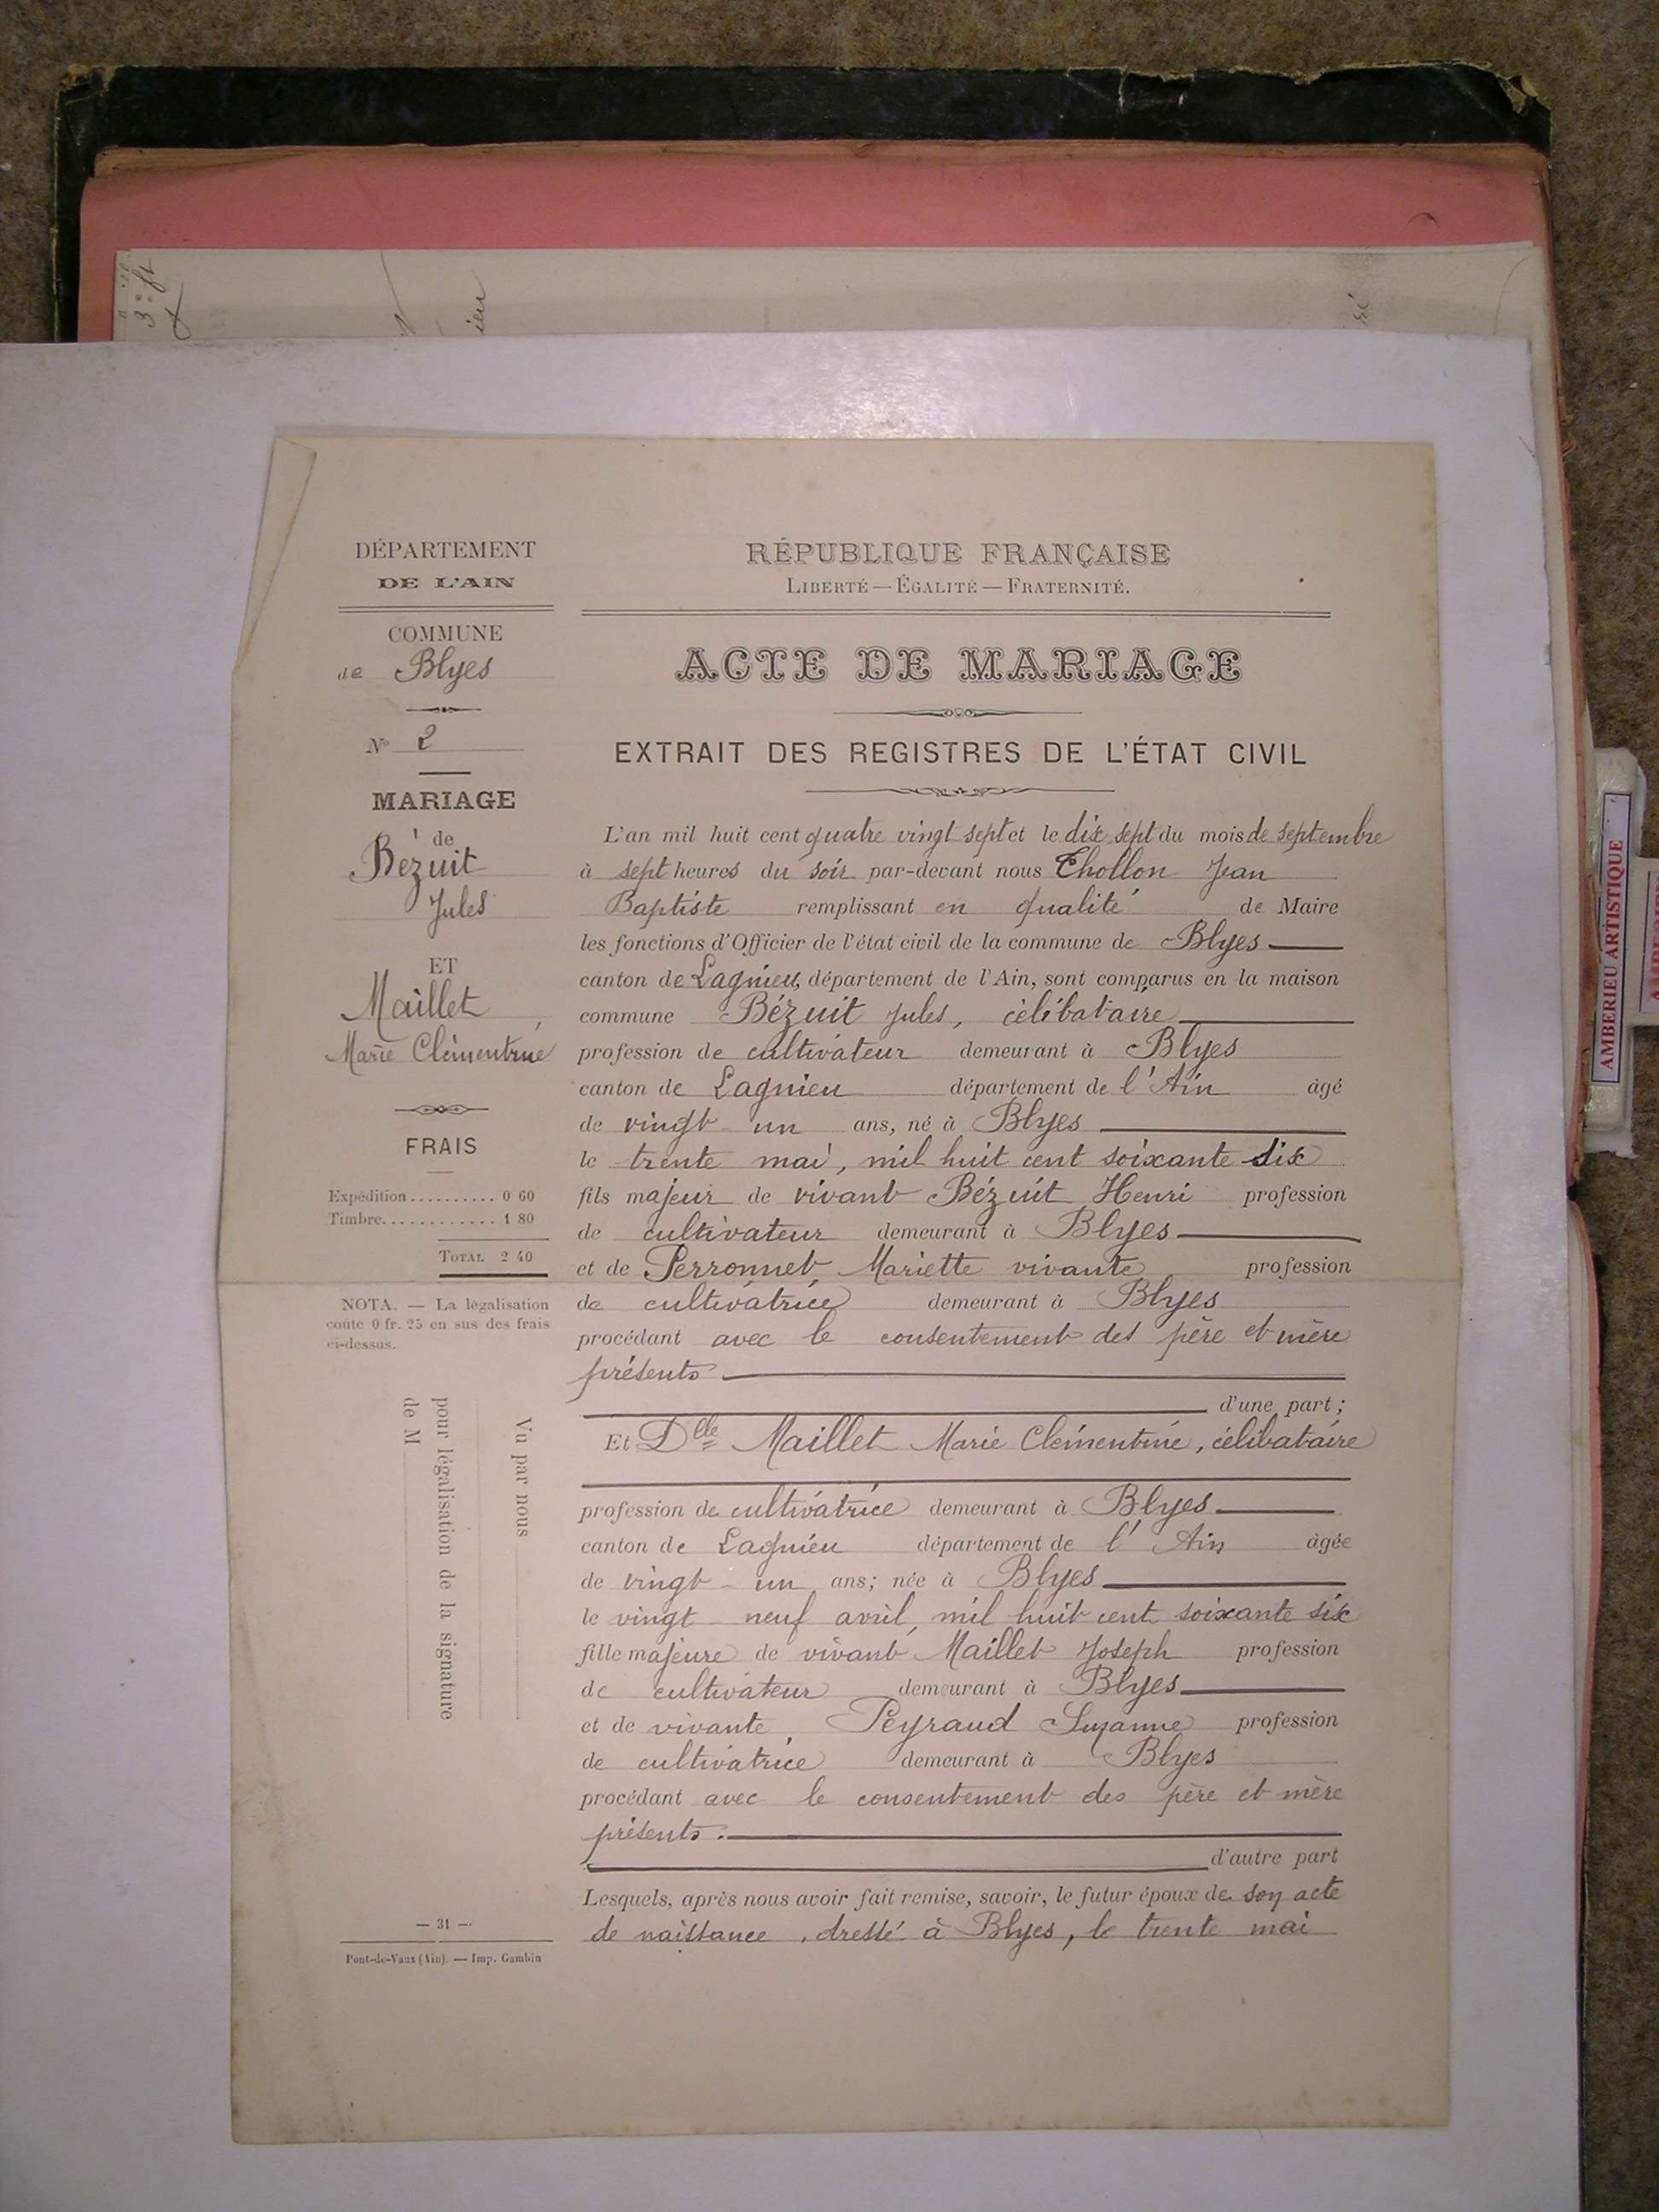 DÉPARTEMENT
DE L'AIN
COMMUNE
de Blyes
N° 2
MARIAGE
de
Bézuit
Jules
ET
Maillet,
Marie Clémentine
FRAIS
Expédition.......... 0 60
Timbre............ 1 80
TOTAL 2 40
NOTA. — La légalisation
coûte 0 fr. 25 en sus des frais
ci-dessus.
Vu par nous
pour légalisation de la signature
de M
— 31 —
Pont-de-Vaux (Ain). — Imp. Gambin
RÉPUBLIQUE FRANÇAISE
LIBERTÉ — ÉGALITÉ — FRATERNITÉ.
ACTE DE MARIAGE
EXTRAIT DES REGISTRES DE L'ÉTAT CIVIL
L'an mil huit cent quatre vingt sept et le dix sept du mois de septembre
à sept heures du soir par-devant nous Chollon Jean
Baptiste remplissant en qualité de Maire
les fonctions d'Officier de l'état civil de la commune de Blyes
canton de Lagnieu, département de l'Ain, sont comparus en la maison
commune Bézuit Jules, célibataire
profession de cultivateur demeurant à Blyes
canton de Lagnieu département de l'Ain âgé
de vingt-un ans, né à Blyes
le trente mai, mil huit cent soixante six
fils majeur de vivant Bézuit Henri profession
de cultivateur demeurant à Blyes
et de Perronnet, Mariette vivante profession
de cultivatrice demeurant à Blyes
procédant avec le consentement des père et mère
présents
d'une part ;
Et Dlle Maillet Marie Clémentine, célibataire
profession de cultivatrice demeurant à Blyes
canton de Lagnieu département de l'Ain âgée
de vingt-un ans; née à Blyes
le vingt-neuf avril, mil huit cent soixante six
fille majeure de vivant Maillet Joseph profession
de cultivateur demeurant à Blyes
et de vivante, Peyraud Suzanne profession
de cultivatrice demeurant à Blyes
procédant avec le consentement des père et mère
présents.
d'autre part
Lesquels, après nous avoir fait remise, savoir, le futur époux de son acte
de naissance, dressé à Blyes, le trente mai
AMBERIEU ARTISTIQUE